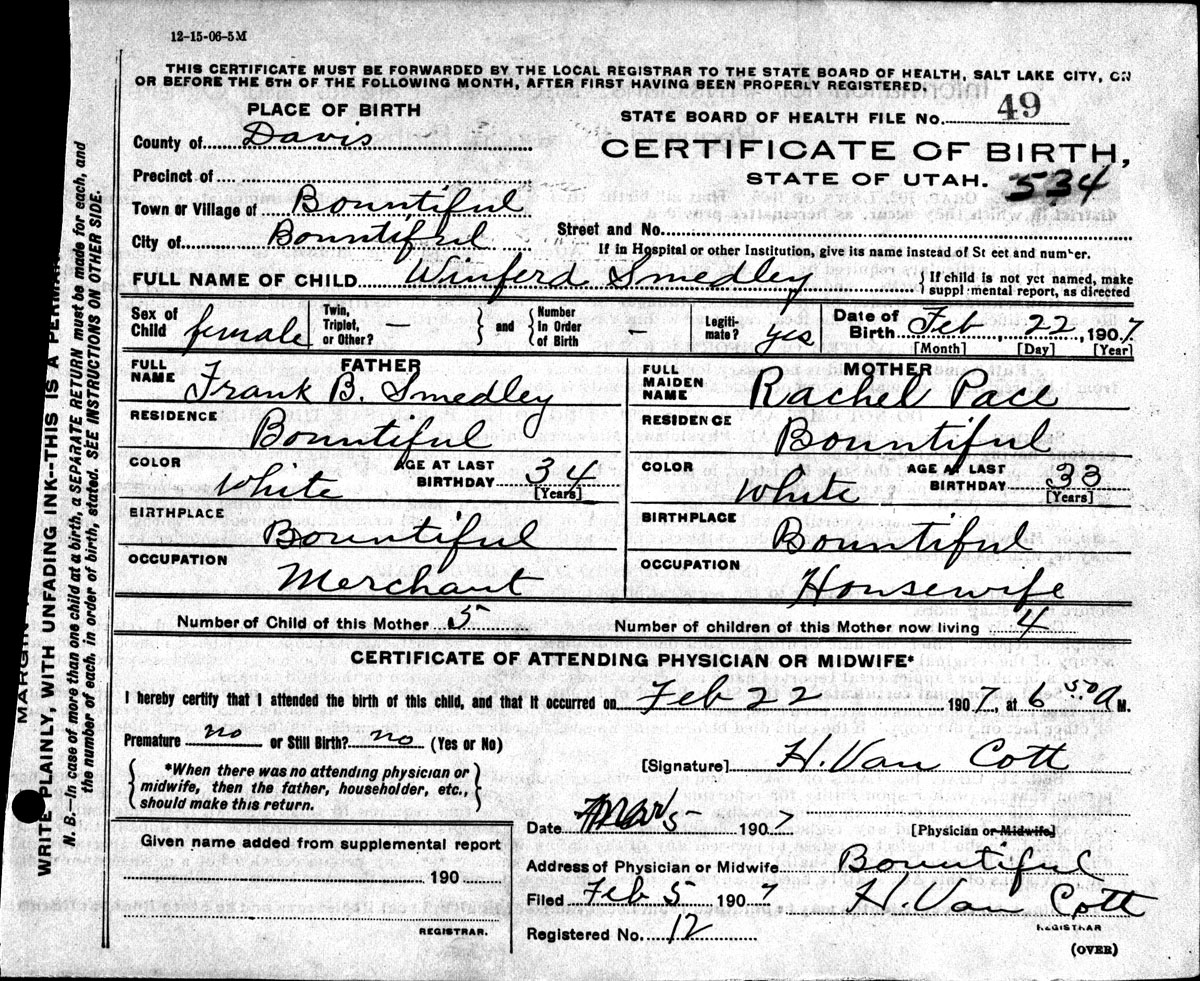 12-15-06-5M
THIS CERTIFICATE MUST BE FORWARDED BY THE LOCAL REGISTRAR TO THE STATE BOARD OF HEALTH, SALT LAKE CITY, ON
OR BEFORE THE 5TH OF THE FOLLOWING MONTH, AFTER FIRST HAVING BEEN PROPERLY REGISTERED.
PLACE OF BIRTH
STATE BOARD OF HEALTH FILE No. 49
County of Davis
CERTIFICATE OF BIRTH,
Precinct of
STATE OF UTAH. 534
Town or Village of Bountiful
Street and No.
City of Bountiful
If in Hospital or other Institution, give its name instead of St eet and number.
FULL NAME OF CHILD Winferd Smedley { If child is not yet named, make
suppl mental report, as directed
Sex of Child female Twin, Triplet, or Other? – } and { Number In Order of Birth – Legiti-mate? yes Date of Birth Feb 22, 1907
[Month] [Day] [Year]
FATHER
FULL NAME Frank B. Smedley
RESIDENCE Bountiful
COLOR White AGE AT LAST BIRTHDAY 34 [Years]
BIRTHPLACE Bountiful
OCCUPATION Merchant
MOTHER
FULL MAIDEN NAME Rachel Pace
RESIDENCE Bountiful
COLOR White AGE AT LAST BIRTHDAY 33 [Years]
BIRTHPLACE Bountiful
OCCUPATION Housewife
Number of Child of this Mother 5 Number of children of this Mother now living 4
CERTIFICATE OF ATTENDING PHYSICIAN OR MIDWIFE*
I hereby certify that I attended the birth of this child, and that it occurred on Feb 22 1907, at 6 50 A M.
Premature no or Still Birth? no (Yes or No)
[Signature] H. Van Cott
{ *When there was no attending physician or
midwife, then the father, householder, etc.,
should make this return. }
Date Mar 5 1907 [Physician or Midwife]
Given name added from supplemental report
190
REGISTRAR.
Address of Physician or Midwife Bountiful
Filed Feb 5 1907 H. Van Cott
REGISTRAR
Registered No. 12
(OVER)
MARGIN
WRITE PLAINLY, WITH UNFADING INK--THIS IS A PERMA
N. B.—In case of more than one child at a birth, a SEPARATE RETURN must be made for each, and
the number of each, in order of birth, stated. SEE INSTRUCTIONS ON OTHER SIDE.